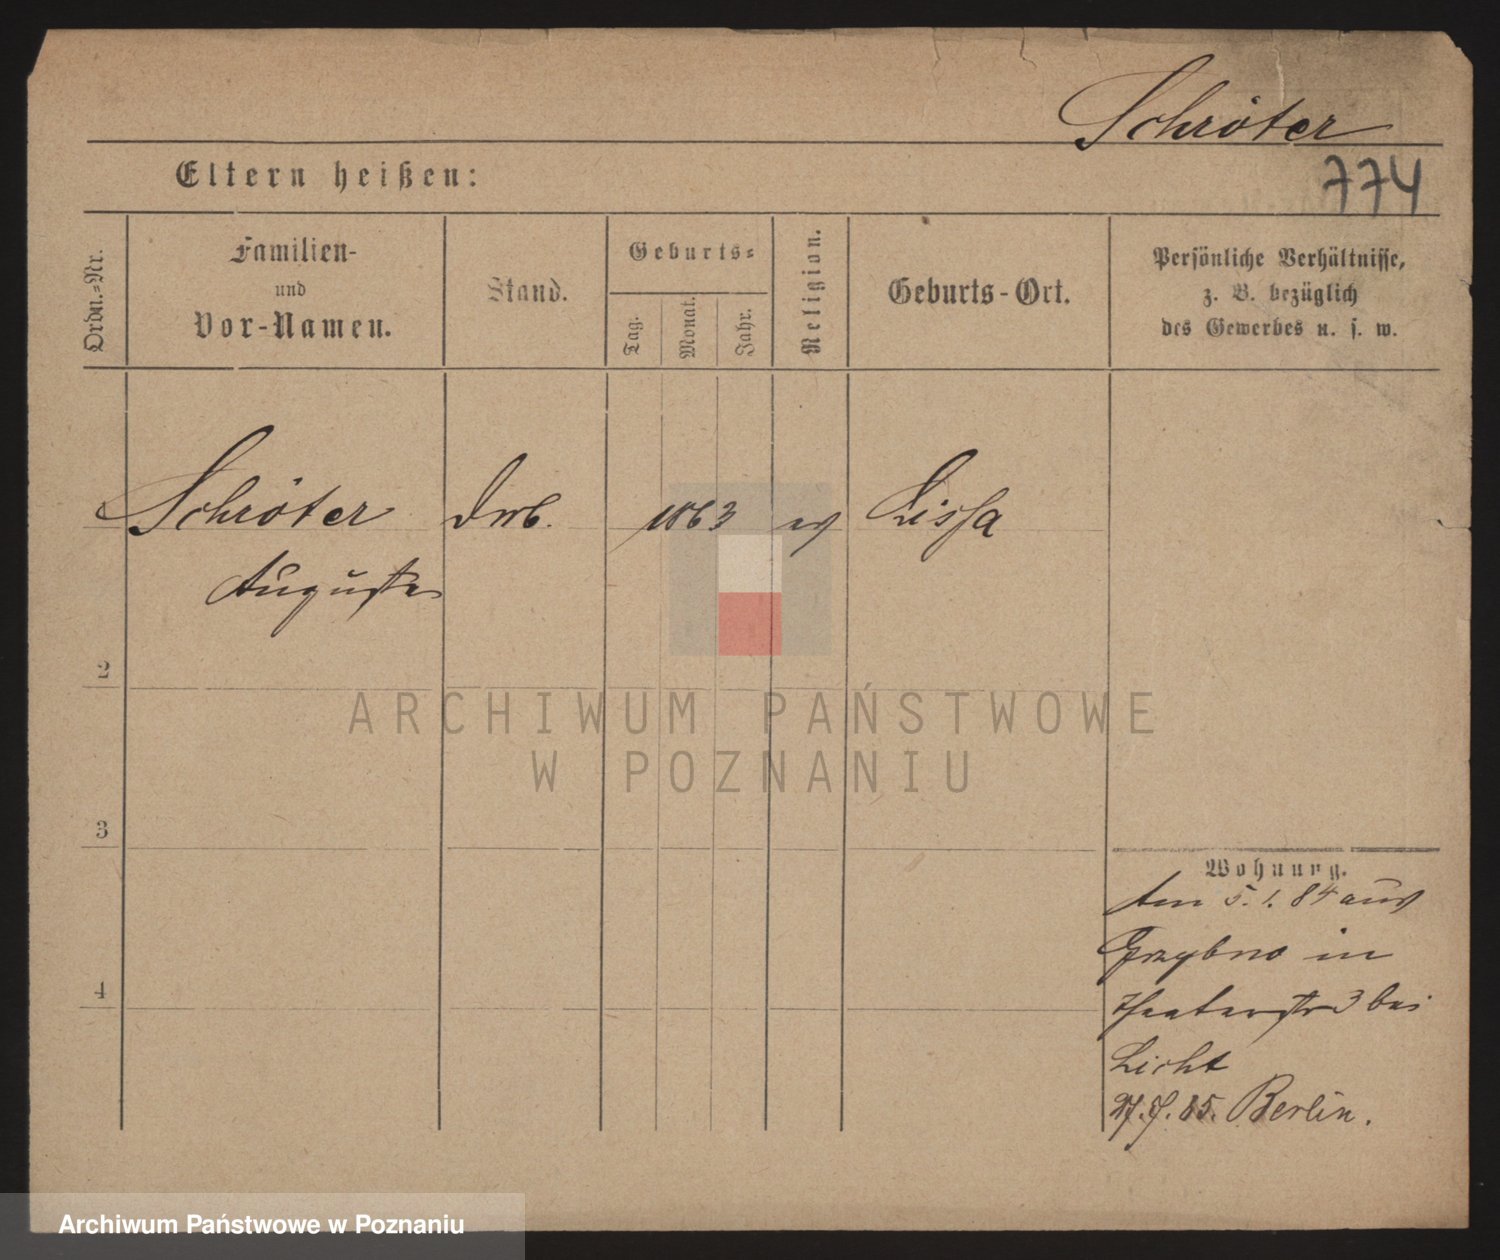 Schröter
774
Eltern heißen:
Ordn.-Nr.
Familien-
und
Vor-Namen.
Stand.
Geburts-
Tag.
Monat.
Jahr.
Religion.
Geburts-Ort.
Persönliche Verhältnisse,
z. B. bezüglich
des Gewerbes u. s. w.
1 Schröter 1863 ev Lissa
Auguste
2
3
4
Wohnung.
Am 5.1.84 aus
Grzybno in
Theaterstr 3 bei
Licht
85. Berlin.
ARCHIWUM PAŃSTWOWE
W POZNANIU
Archiwum Państwowe w Poznaniu